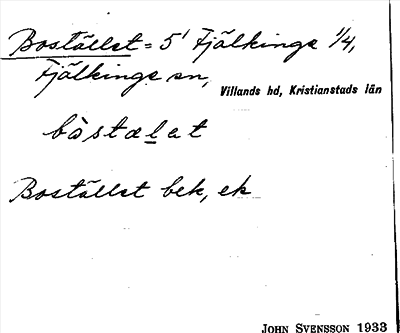 Bostället = 5¹ Fjälkinge 1/4,
Fjälkinge sn,
Villands hd, Kristianstads län
bòstælat
Bostället bek, ek
JOHN SVENSSON 1933